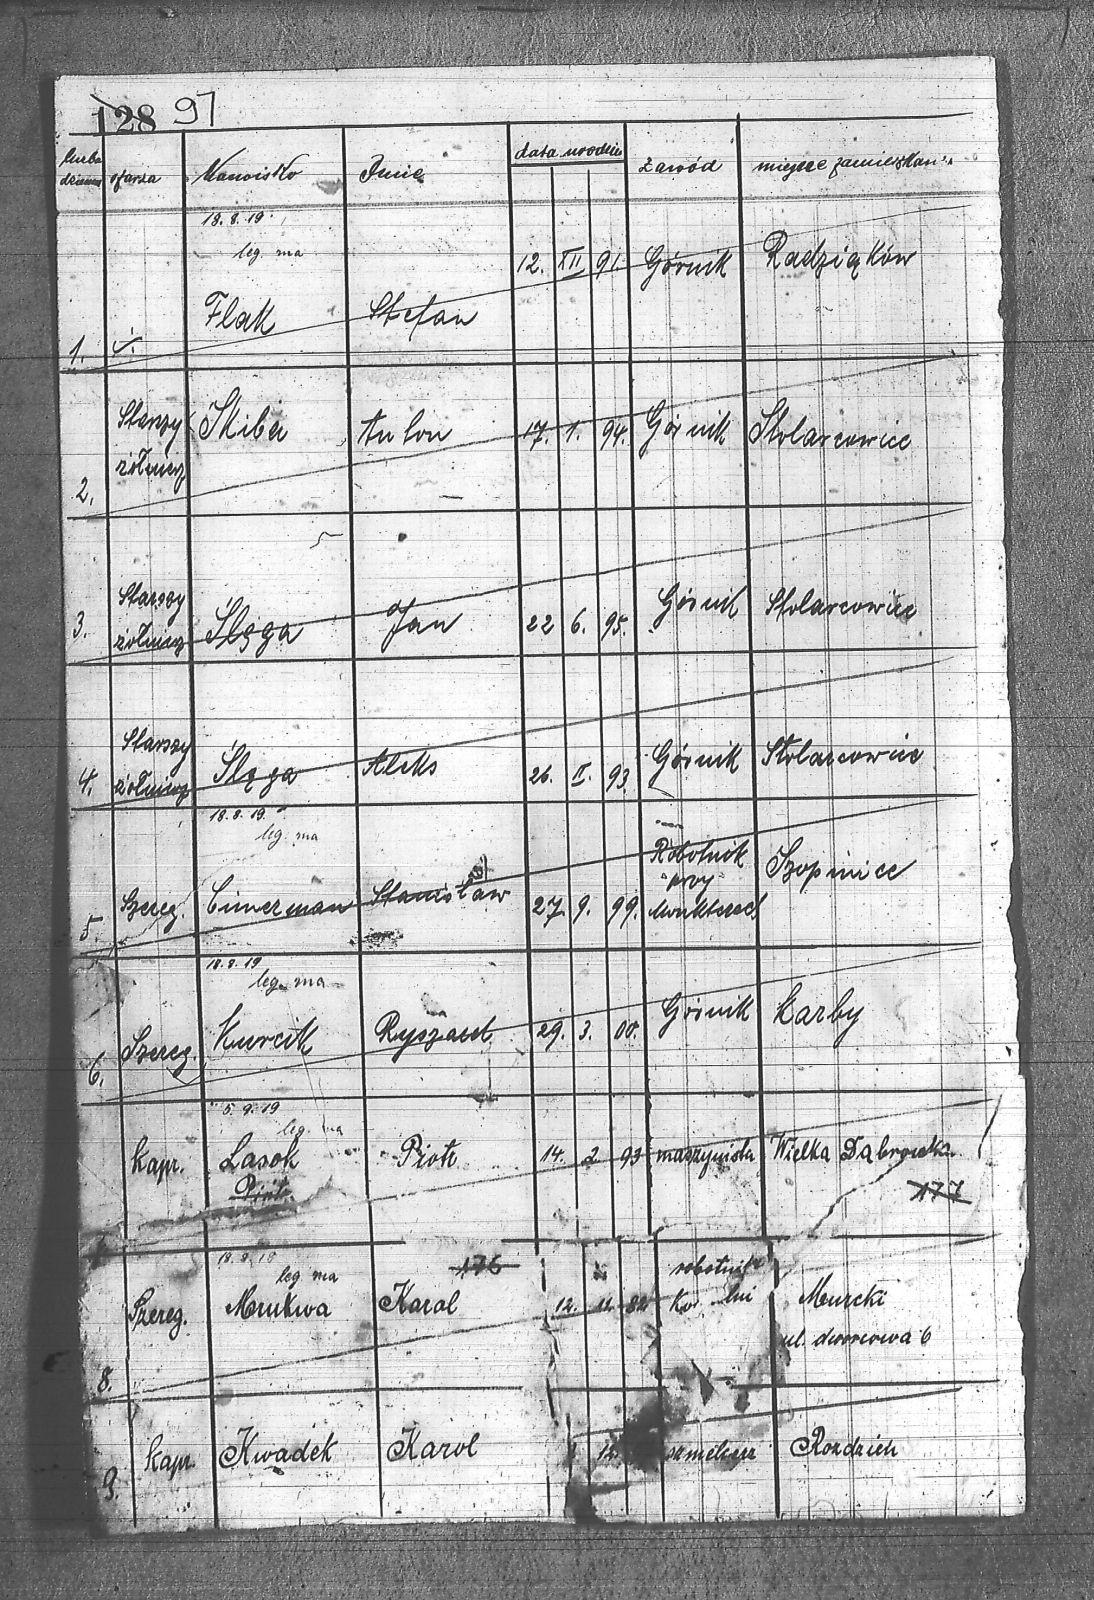 128 97
liczba dzienna szarża Nazwisko Imie data urodzin zawód miejsce zamieszkania
18.8.19
leg. ma
12. XII 91. Górnik Radziąków
1. Flak Stefan
Starszy Skiba Anton 17. 1. 94. Górnik Stolarcowice
żołnierz
2.
Starszy Górnik Stolarcowice
3. żołnierz Ślęga Jan 22 6. 95.
Starszy Górnik Stolarcowice
4. żołnierz Ślęga Aleks 26. II. 93
18.8.19.
leg. ma
Robotnik Szopinice
przy
5. Szereg. Cimerman Stanisław 27 9. 99.
18.8.19
leg. ma
Górnik Karby
6. Szereg. Kurcik Ryszard 29. 3. 00.
5.9.19
leg. ma
kapr. Lasok Piotr 14. 2 93 maszynista Wielka Dąbrowka
Piotr 177
18.8.19
leg. ma 176 robotnik
Szereg. Mrukwa Karol 12. 11. 82 Murcki
ul. dworcowa 6
8.
kapr. Kwadek Karol 12 Rozdzień
9.